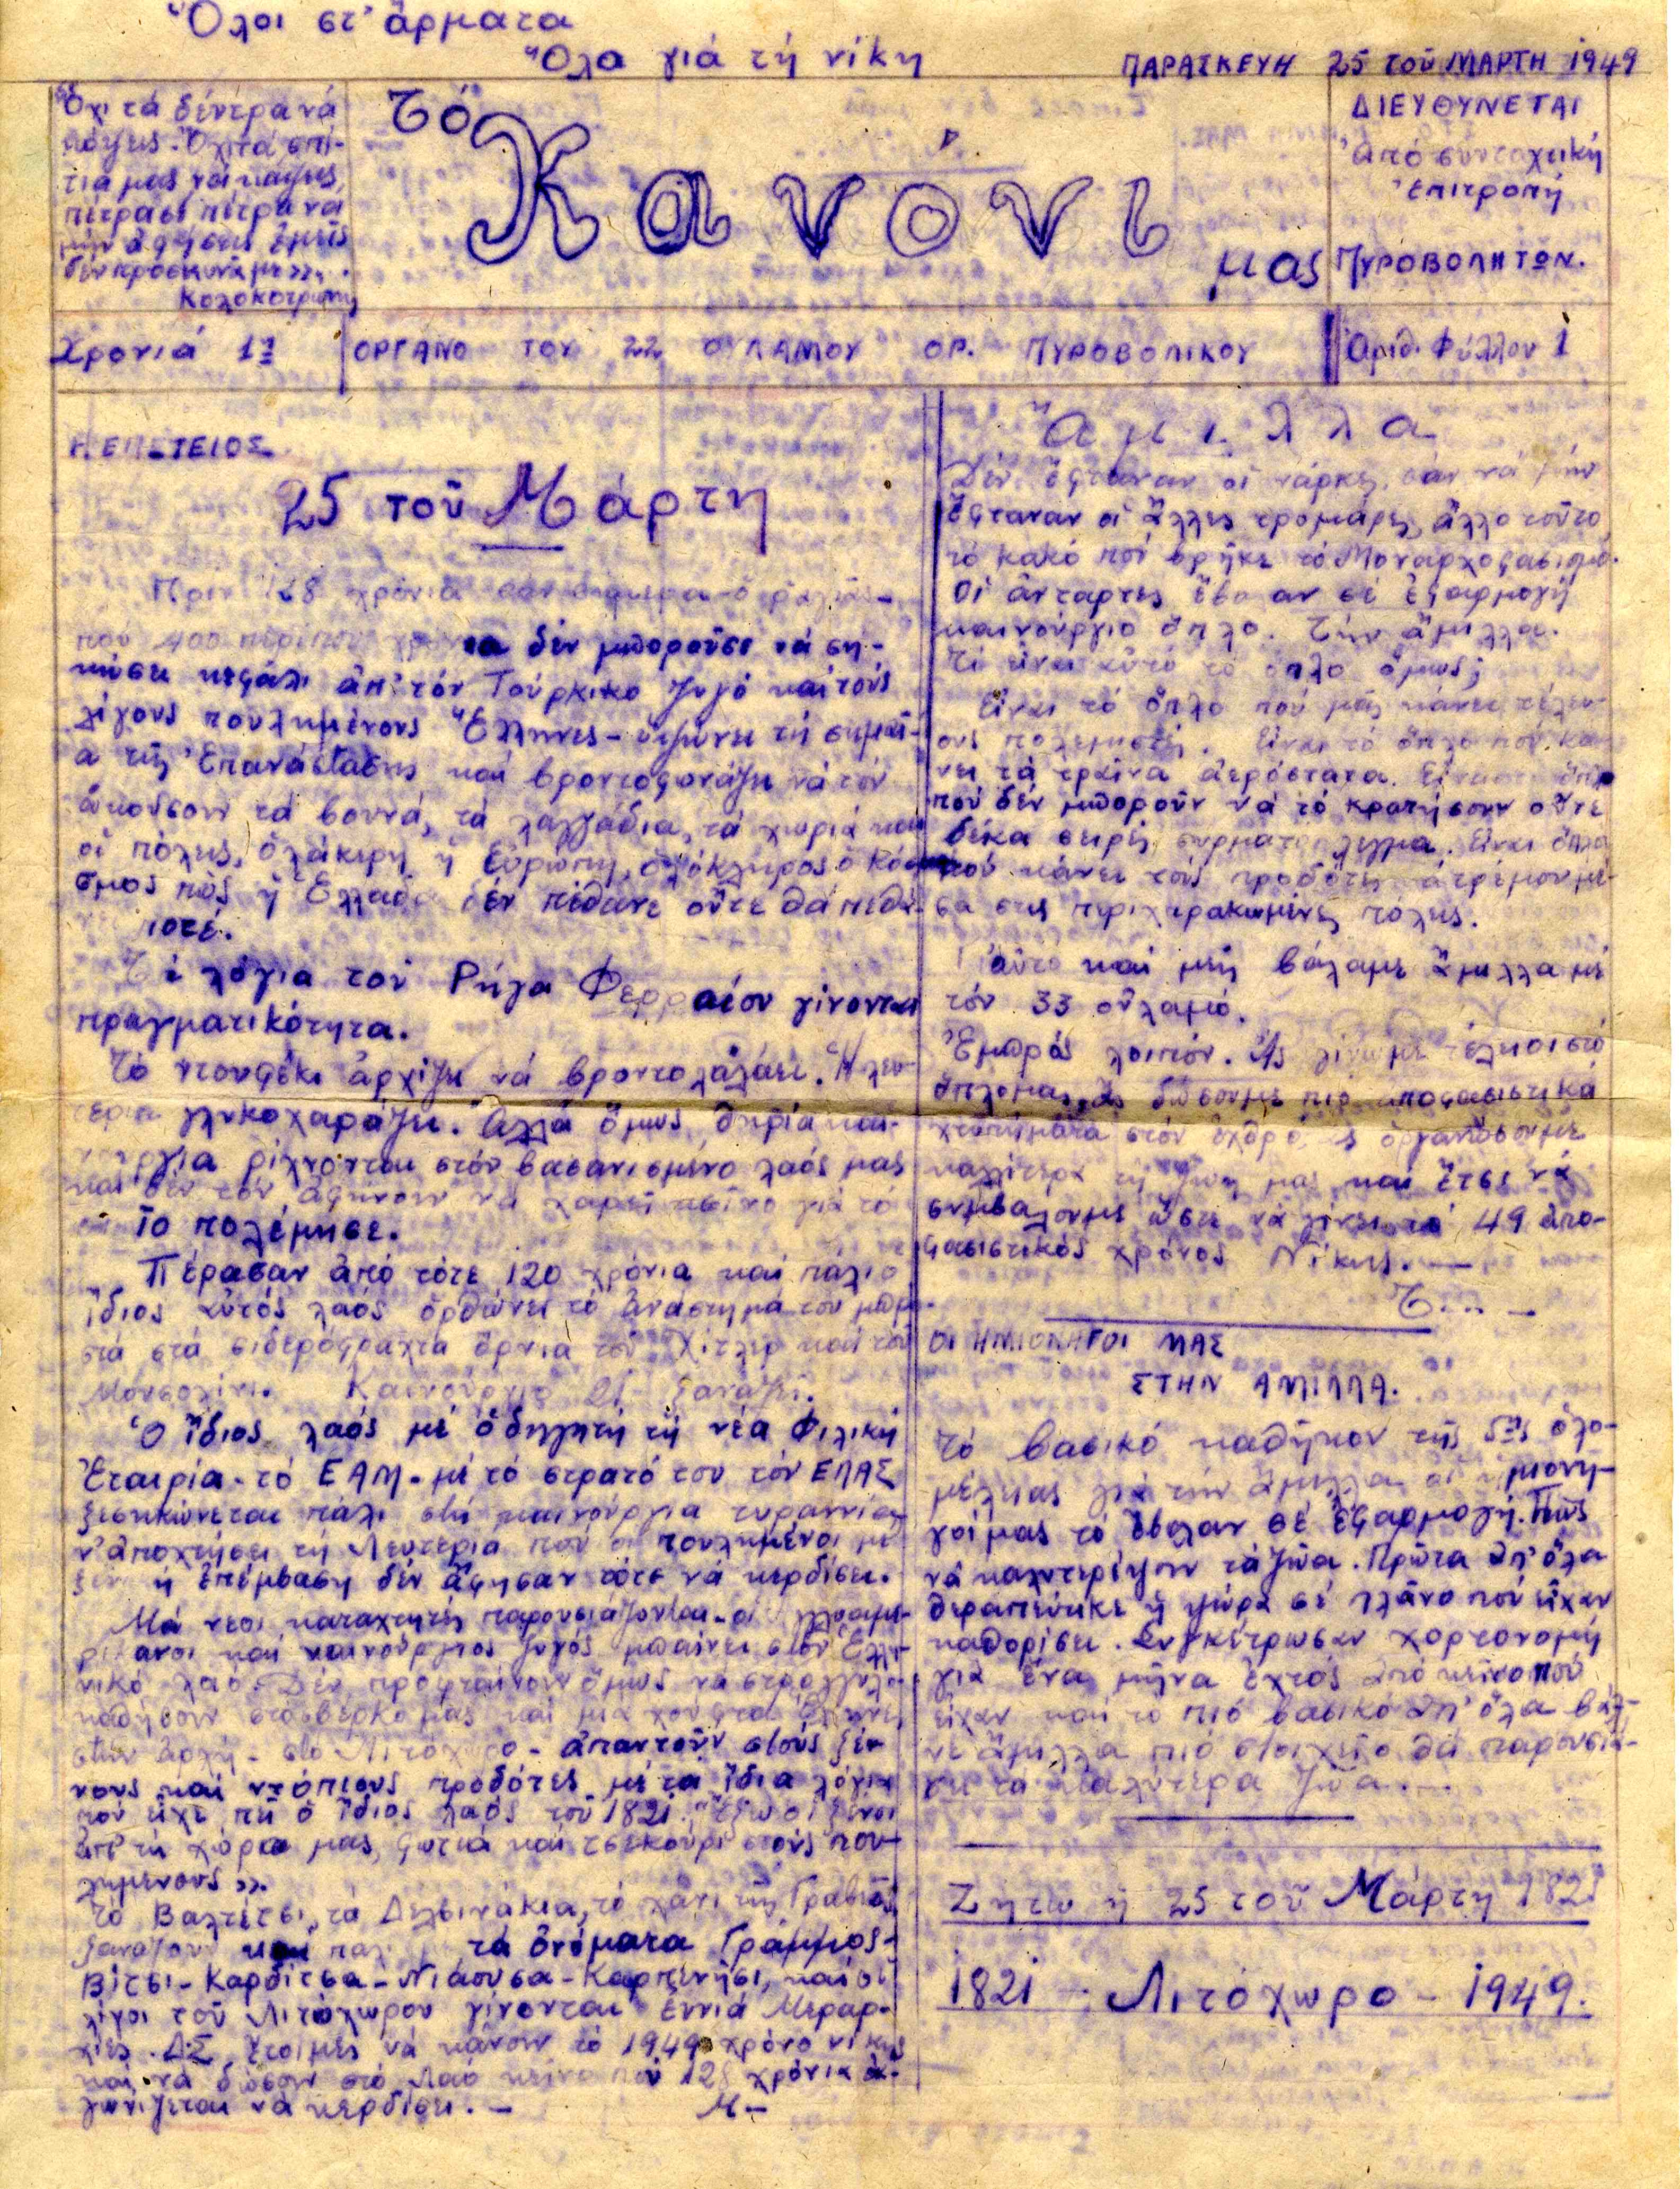 Ὅλοι στ' ἄρματα
Ὅλα γιά τή νίκη
ΠΑΡΑΣΚΕΥΗ 25 τοῦ ΜΑΡΤΗ 1949
Ὄχι τά δέντρα νά
κόψεις. Ὄχι τά σπί-
τια μας νά κάψεις,
πέτρα σέ πέτρα νά
μήν ἀφήσεις ἐμεῖς
δέν προσκυνᾶμε».
Κολοκοτρώνης
Τό
Κανονι
μας
ΔΙΕΥΘΥΝΕΤΑΙ
Ἀπό συνταχτική
Ἐπιτροπή
ΠΥΡΟΒΟΛΗΤΩΝ.
Χρονιά 1η
ΟΡΓΑΝΟ ΤΟΥ 22 ΟΥΛΑΜΟΥ ΟΡ. ΠΥΡΟΒΟΛΙΚΟΥ
Ἀριθ. Φύλλου 1
Η ΕΠΕΤΕΙΟΣ
25 τοῦ Μάρτη
Πριν 128 χρόνια σαν σήμερα ὁ ραγιᾶς-
πού 400 περίπου χρόνια δέν μποροῦσε νά ση-
κώσει κεφάλι ἀπ' τόν Τούρκικο ζυγό καί τούς
λίγους πουλημένους Ἕλληνες - ὑψώνει τή σημαί-
α τῆς Ἐπανάστασης καί βροντοφωνάζει νά τόν
ἀκούσουν τά βουνά, τά λαγγάδια, τά χωριά καί
οἱ πόλεις, ὁλάκερη ἡ Εὐρώπη, ὁλόκληρος ὁ Κό-
σμος πώς ἡ Ἑλλάδα δέν πέθανε οὔτε θά πεθά-
ποτέ.
Τά λόγια τοῦ Ρήγα Φερραίου γίνονται
πραγματικότητα.
Τό ντουφέκι ἀρχίζει νά βροντολαλάει. Ἡ λευ-
τεριά γλυκοχαράζει. Ἀλλά ὅμως θηρία και-
νούργια ρίχνονται στόν βασανισμένο λαός μας
καί δέν τόν ἀφήνουν νά χαρεῖ κεῖνο γιά τό
το πολέμησε.
Πέρασαν ἀπό τότε 120 χρόνια καί πάλι ὁ
ἴδιος αὐτός λαός ὀρθώνει τό ἀνάστημά του μπρο-
στά στά σιδερόφραχτα ὄρνια τοῦ Χίτλερ καί τοῦ
Μουσολίνι. Καινούργιο 21 ξαναζεῖ.
Ὁ ἴδιος λαός μέ ὁδηγητή τή νέα Φιλική
Ἑταιρία - τό ΕΑΜ - μέ τό στρατό του τόν ΕΛΑΣ
ξεσηκώνεται πάλι στή καινούργια τυραννία
ν' ἀποχτήσει τή Λευτεριά πού οἱ πουλημένοι μέ
ἡ ἐπέμβαση δέν ἄφησαν τότε νά κερδίσει.
Μά νέοι καταχτητές παρουσιάζονται - οἱ Ἀγγλοαμε-
ρικανοι καί καινούργιος ζυγός μπαίνει στόν Ἑλλη-
νικό λαό. Δέν προφταίνουν ὅμως νά στρογγυλο-
καθήσουν στό σβέρκο μας καί μιά χούφτα Ἕλληνες
στήν ἀρχή - στό Λιτόχωρο - ἀπαντοῦν στούς ξέ-
νους καί ντόπιους προδότες μέ τά ἴδια λόγια
πού εἶχε πεῖ ὁ ἴδιος λαός τοῦ 1821. «Ἔξω οἱ ξένοι
ἀπ' τή χώρα μας, φωτιά καί τσεκούρι στούς που-
λημένους».
Τό Βαλτέτσι, τά Δερβενάκια, τό χάνι τῆς Γραβιᾶς
ξαναζοῦν καί πάλι μέ τά ὀνόματα Γράμμος-
Βίτσι - Καρδίτσα - Νιάουσα - Καρπενήσι, καί οἱ
λίγοι τοῦ Λιτόχωρου γίνονται ἐννιά Μεραρ-
χίες. ΔΣ ἕτοιμες νά κάνουν τό 1949 χρόνο νίκης
καί νά δώσουν στό λαό κεῖνο πού 128 χρόνια ἀ-
γωνίζεται νά κερδίσει. -
Μ -
Ἄμιλλα
Δέν ἔφταναν οἱ νάρκες, σάν νά μήν
ἔφταναν οἱ ἄλλες τρομάρες, ἄλλο τοῦτο
τό κακό πού βρῆκε τό Μοναρχοφασισμό.
Οἱ ἀντάρτες ἔβαλαν σέ ἐφαρμογή
καινούργιο ὅπλο. Τήν ἅμιλλα.
Τί εἶναι αὐτό τό ὅπλο ὅμως;
Εἶναι τό ὅπλο πού μᾶς κάνει τέλει-
ους πολεμιστές. Εἶναι τό ὅπλο πού κά-
νει τά τραίνα ἀερόστατα. Εἶναι τό ὅπλο
πού δέν μποροῦν νά τό κρατήσουν οὔτε
δέκα σειρές συρματοπλέγμα. Εἶναι ὅπλο
πού κάνει τούς προδότες νά τρέμουν μέ-
σα στις περιχαρακωμένες πόλεις.
Γι' αὐτό καί μεῖς βάλαμε ἅμιλλα μέ
τόν 33 οὐλαμό.
Ἐμπρός λοιπόν. Ἄς γίνουμε τέλειοι στό
ὅπλο μας, ἄς δώσουμε πιό ἀποφασιστικά
χτυπήματα στόν ἐχθρό, ἄς ὀργανώσουμε
καλλίτερα τή ζωή μας καί ἔτσι νά
συμβάλουμε ὥστε νά γίνει τό 49 ἀπο-
φασιστικός χρόνος Νίκης. -
Τ... -
ΟΙ ΗΜΙΟΝΗΓΟΙ ΜΑΣ
ΣΤΗΝ ΑΜΙΛΛΑ.
Τό βασικό καθῆκον τῆς ὁλο-
μέλειας γιά τήν ἅμιλλα οἱ ἡμιονη-
γοί μας τό ἔβαλαν σέ ἐφαρμογή. Πῶς
νά καλυτερέψουν τά ζῶα. Πρῶτα ἀπ' ὅλα
θεραπεύτηκε ἡ ψώρα σέ πλάνο πού εἶχαν
καθορίσει. Συγκέντρωσαν χορτονομή
γιά ἕνα μήνα ἐχτός ἀπό κεῖνο πού
εἶχαν καί τό πιό βασικό ἀπ' ὅλα βάλ-
νε ἅμιλλα πιό στοιχεῖο θά παρουσιά-
σει τά καλύτερα ζῶα. -
Ζήτω ἡ 25 τοῦ Μάρτη 1821
1821 - Λιτόχωρο - 1949.